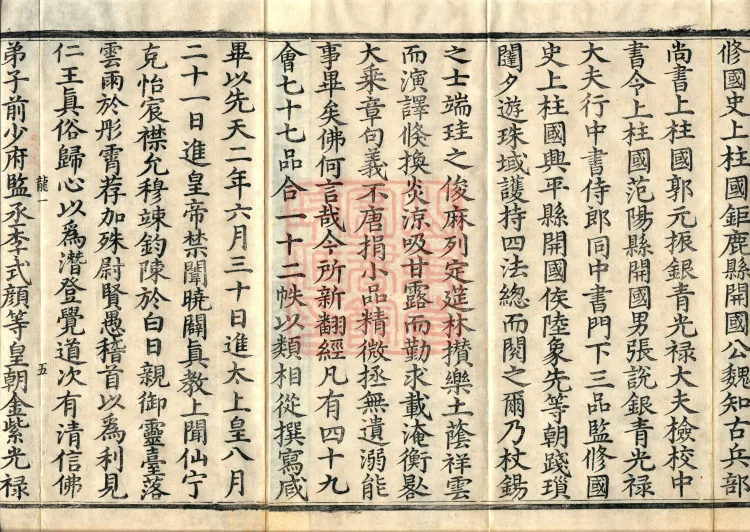 修國史上柱國鉅鹿縣開國公魏知古兵部
尚書上柱國郭元振銀青光禄大夫檢校中
書令上柱國范陽縣開國男張說銀青光禄
大夫行中書侍郎同中書門下三品監修國
史上柱國興平縣開國侯陸象先等朝踐瑣
闥夕遊珠域護持四法總而閱之爾乃杖錫
之士端珪之俊麻列定筵林攢樂土蔭祥雲
而演譯倏換炎涼吸甘露而勤求載淹衡晷
大乘章句義不唐捐小品精微拯無遺溺能
事畢矣佛何言哉今所新翻經凡有四十九
會七十七品合一十二帙以類相從撰寫咸
畢以先天二年六月三十日進太上皇八月
二十一日進皇帝禁闈曉闢真教上聞仙宁
克怡宸襟允穆竦鈞陳於白日親御靈臺落
雲雨於彤霄荐加殊尉賢愚稽首以為利見
仁王真俗歸心以為潛登覺道次有清信佛
龍一
五
弟子前少府監丞李式顏等皇朝金紫光禄